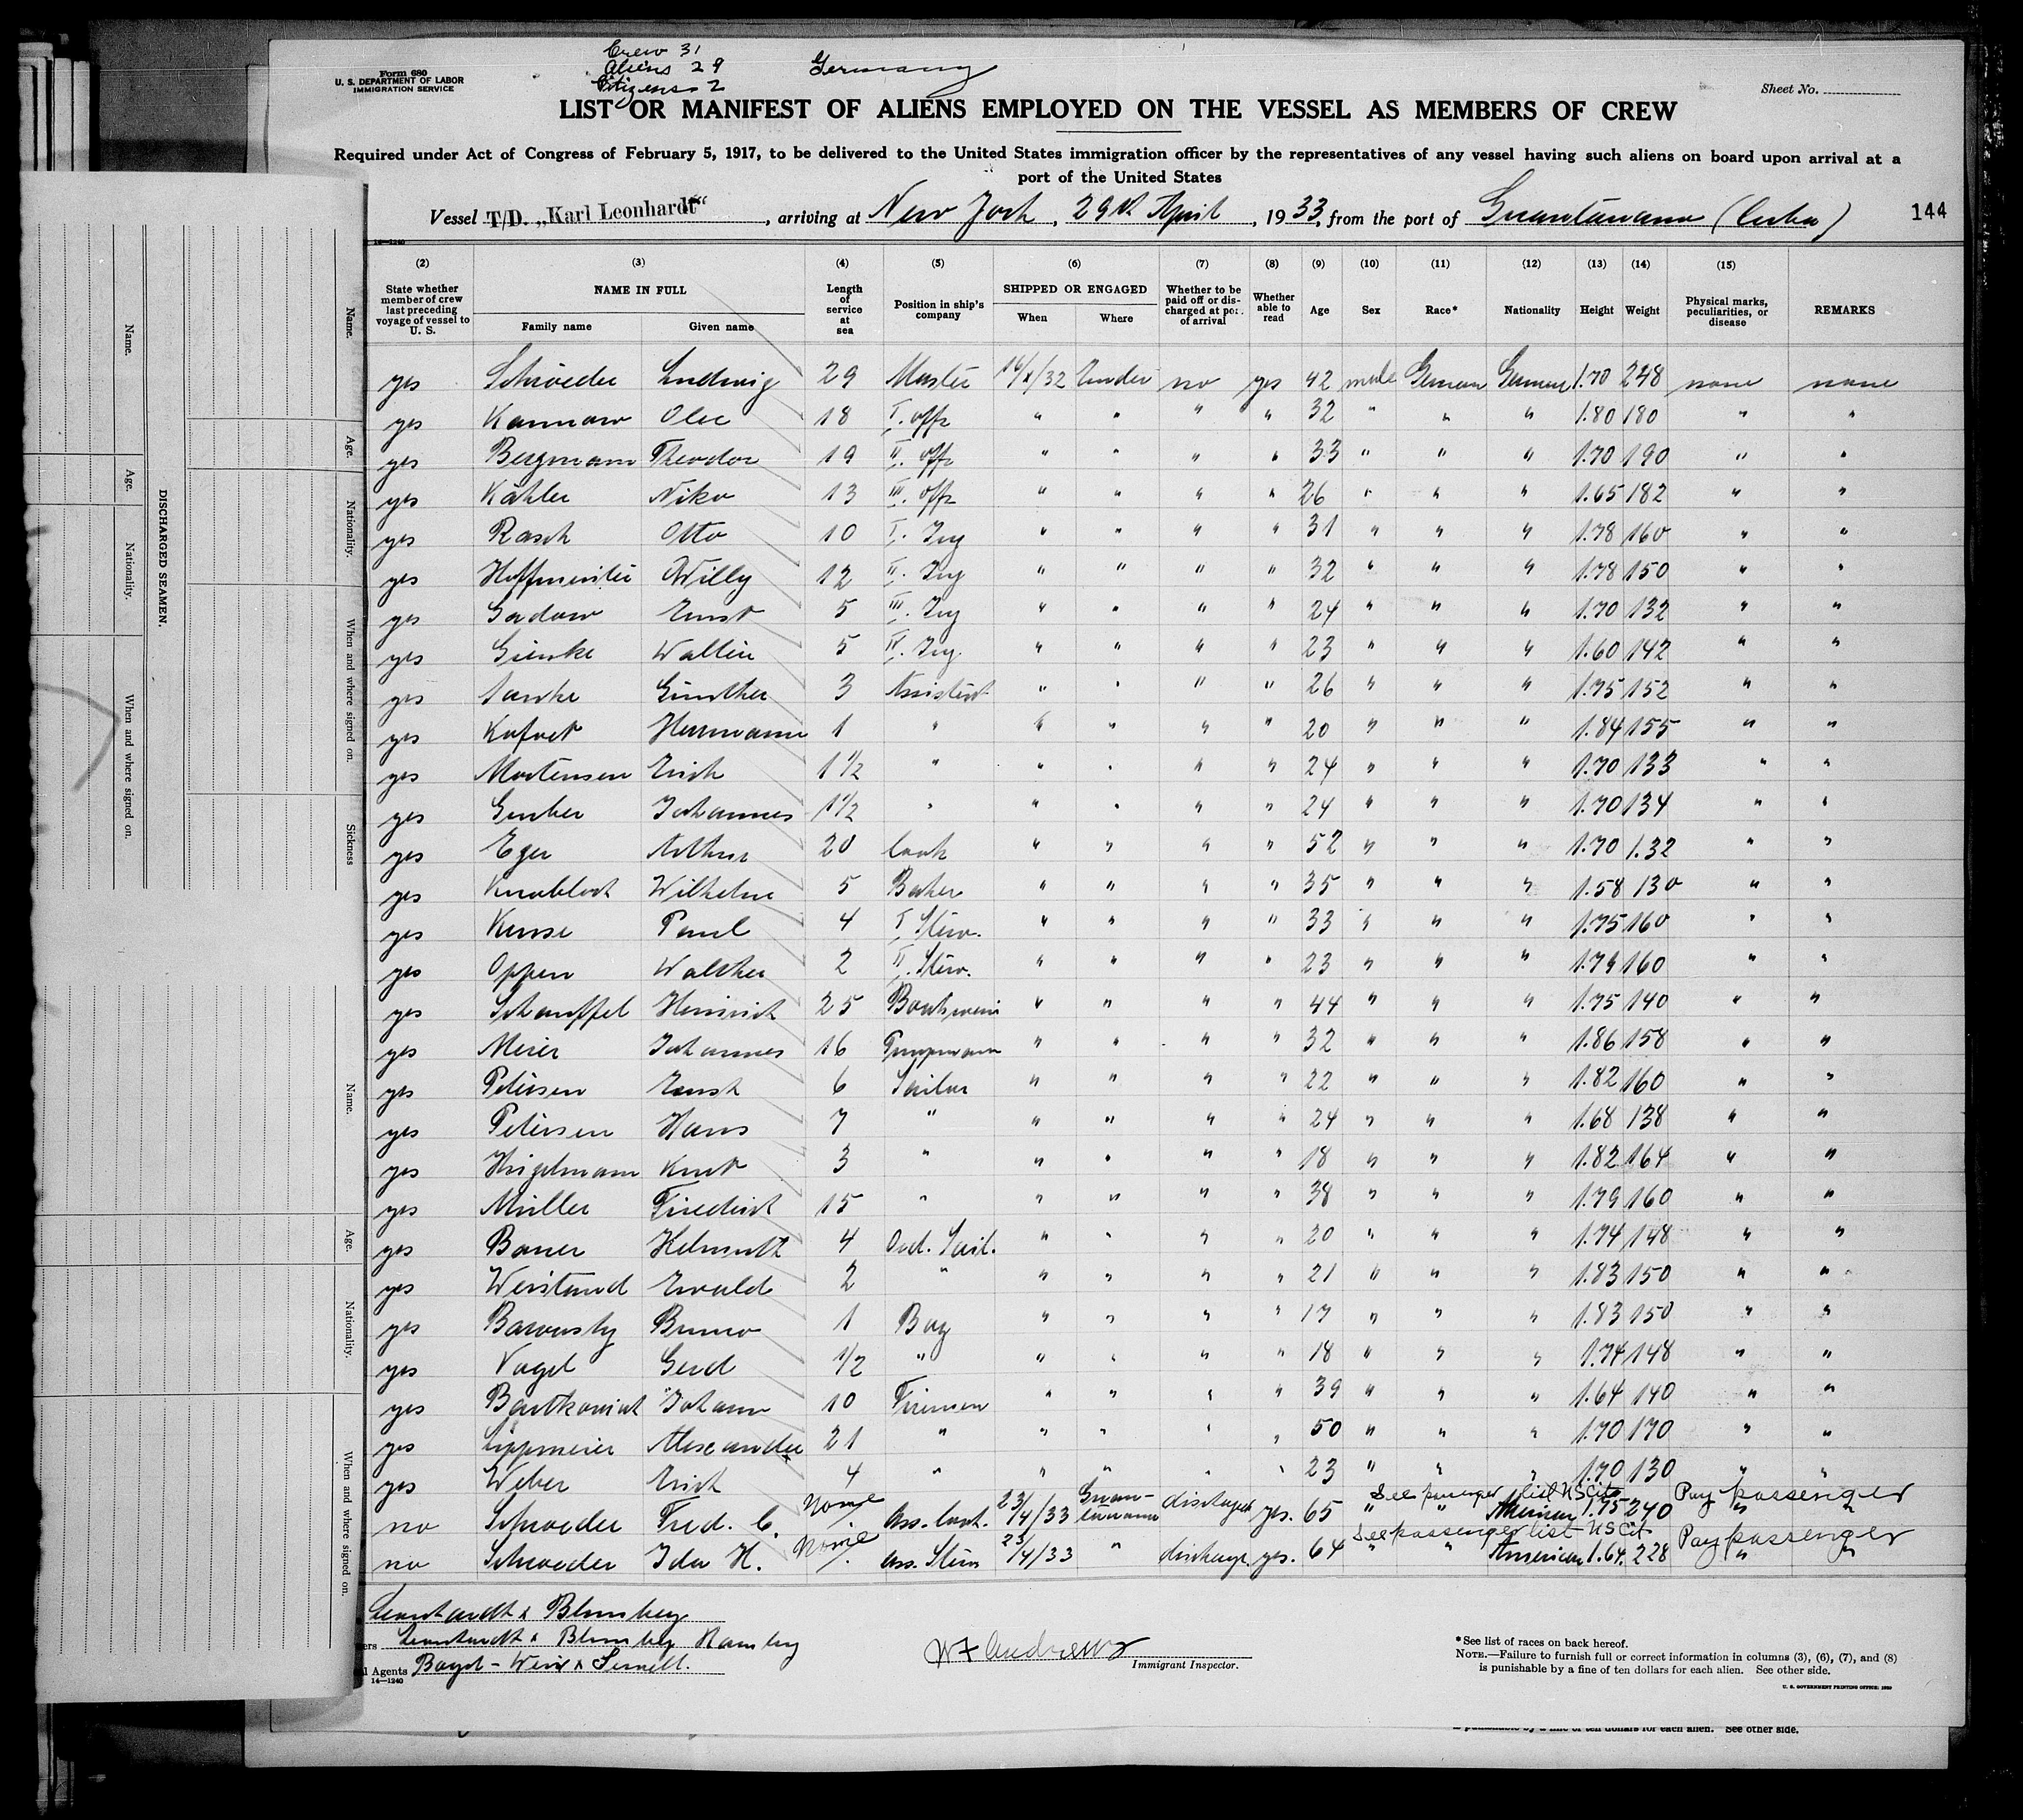 Crew 31
Aliens 29
Citizens 2
Germany
Form 680
U. S. DEPARTMENT OF LABOR
IMMIGRATION SERVICE
Sheet No.
LIST OR MANIFEST OF ALIENS EMPLOYED ON THE VESSEL AS MEMBERS OF CREW
Required under Act of Congress of February 5, 1917, to be delivered to the United States immigration officer by the representatives of any vessel having such aliens on board upon arrival at a
port of the United States
Vessel T/D. „Karl Leonhardt“, arriving at New York, 29th April, 1933, from the port of Guantanamo (Cuba)
144
14—1240
(2) (3) (4) (5) (6) (7) (8) (9) (10) (11) (12) (13) (14) (15)
State whether member of crew last preceding voyage of vessel to U. S. NAME IN FULL Family name Given name Length of service at sea Position in ship's company SHIPPED OR ENGAGED When Where Whether to be paid off or discharged at port of arrival Whether able to read Age Sex Race* Nationality Height Weight Physical marks, peculiarities, or disease REMARKS
yes Schroeder Ludwig 29 Master 32 no yes 42 male German German 1.70 248 none none
yes Kannaw 18 I. offz " " " " 32 " " " 1.80 180 " "
yes Bergmann Theodor 19 II. offz " " " " 33 " " " 1.70 190 " "
yes Kähler Niko 13 III. offz " " " " 26 " " " 1.65 182 " "
yes Rasch Otto 10 I. Ing " " " " 31 " " " 1.78 160 " "
yes Hoffmeister Willy 12 II. Ing " " " " 32 " " " 1.78 150 " "
yes Gadow Ernst 5 III. Ing " " " " 24 " " " 1.70 132 " "
yes Walter 5 Ing. " " " " 23 " " " 1.60 142 " "
yes Günther 3 Assistent " " " " 26 " " " 1.75 152 " "
yes Hermann 1 " " " " " 20 " " " 1.84 155 " "
yes Mortensen Erich 1 1/2 " " " " " 24 " " " 1.70 133 " "
yes Johannes 1 1/2 " " " " " 24 " " " 1.70 134 " "
yes Eger Arthur 20 Cook " " " " 52 " " " 1.70 1.32 " "
yes Knobloch Wilhelm 5 Baker " " " " 35 " " " 1.58 130 " "
yes Paul 4 I. Stew. " " " " 33 " " " 1.75 160 " "
yes Oppen Walther 2 II. Stew. " " " " 23 " " " 1.79 160 " "
yes Schauffel Heinrich 25 " " " " 44 " " " 1.75 140 " "
yes Meier Johannes 16 Pumpmann " " " " 32 " " " 1.86 158 " "
yes Petersen Ernst 6 Sailor " " " " 22 " " " 1.82 160 " "
yes Petersen Hans 7 " " " " " 24 " " " 1.68 138 " "
yes Kurt 3 " " " " " 18 " " " 1.82 164 " "
yes Müller Friedrich 15 " " " " " 38 " " " 1.79 160 " "
yes Bauer Helmuth 4 Ord. Sail. " " " " 20 " " " 1.74 148 " "
yes Weistand Ewald 2 " " " " " 21 " " " 1.83 150 " "
yes Bruno 1 Boy " " " " 17 " " " 1.83 150 " "
yes Vogel Gerd 1/2 " " " " " 18 " " " 1.74 148 " "
yes Johann 10 Firemen " " " " 39 " " " 1.64 140 " "
yes Lippmeier Alexander 21 " " " " " 50 " " " 1.70 170 " "
yes Weber Erich 4 " " " " " 23 " " " 1.70 130 " "
See passenger list US Cit Pay passenger
no Schroeder Fred. C. None Ass. Cook. 23/4/33 Guantanamo discharged yes. 65 " " American 1.75 240 " "
See passenger list US Cit Pay passenger
no Schroeder Ida H. None Ass. Stew 23/4/33 " discharge yes. 64 " " American 1.64. 228 " "
Leonhardt & Blumberg
ers Leonhardt & Blumberg Hamburg
l Agents Boyd - Weir & Sewell.
14—1240
W F Andrews
Immigrant Inspector.
*See list of races on back hereof.
NOTE.—Failure to furnish full or correct information in columns (3), (6), (7), and (8)
is punishable by a fine of ten dollars for each alien. See other side.
U. S. GOVERNMENT PRINTING OFFICE: 1929
is punishable by a fine of ten dollars for each alien. See other side.
DISCHARGED SEAMEN.
Name.
Age.
Nationality.
When and where signed on.
Name.
Age.
Nationality.
When and where signed on.
Sickness
Name.
Age.
Nationality.
When and where signed on.